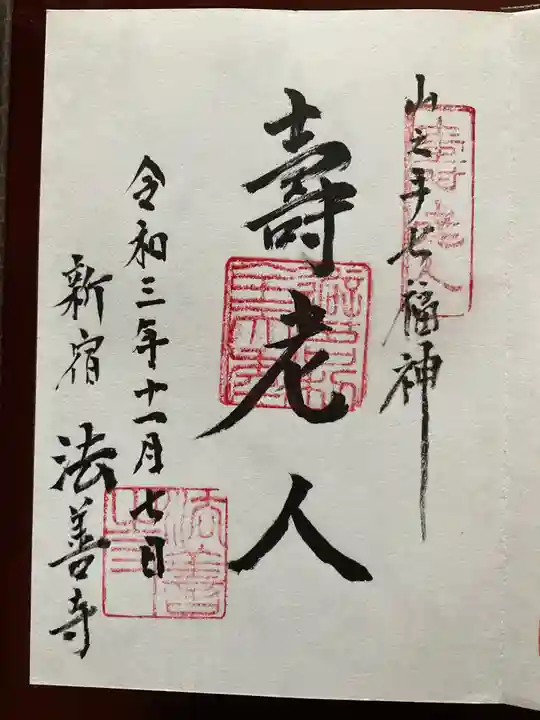 山之手七福神
壽老人
令和三年十一月七日
新宿 法善寺
壽老人